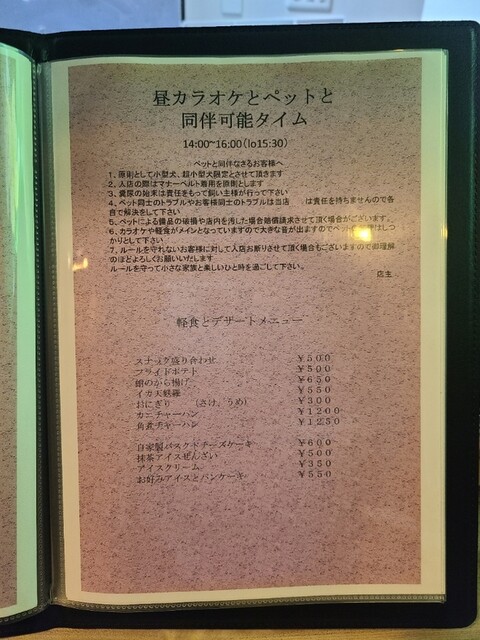 昼カラオケとペットと
同伴可能タイム
14:00~16:00(lo15:30)
ペットと同伴なさるお客様へ
1、原則として小型犬、超小型犬限定とさせて頂きます
2、入店の際はマナーベルト着用を原則とします
3、糞尿の始末は責任をもって飼い主様が行って下さい
4、ペット同士のトラブルやお客様同士のトラブルは当店 は責任を持ちませんので各
自で解決をして下さい
5、ペットによる備品の破損や店内を汚した場合賠償請求させて頂く場合がございます。
6、カラオケや軽食がメインとなっていますので大きな音が出ますのでペット はしっ
かりとして下さい
7、ルールを守れないお客様に対して入店お断りさせて頂く場合もございますので御理解
のほどよろしくお願いいたします
ルールを守って小さな家族と楽しいひと時を過ごして下さい。
店主
軽食とデザートメニュー
スナック盛り合わせ ￥500
フライドポテト ￥500
蛸のから揚げ ￥650
イカ天麩羅 ￥550
おにぎり (さけ、うめ) ￥300
カニチャーハン ￥1200
角煮チャーハン ￥1250
自家製バスクドチーズケーキ ￥600
抹茶アイスぜんざい ￥500
アイスクリーム ￥350
お好みアイスとパンケーキ ￥550